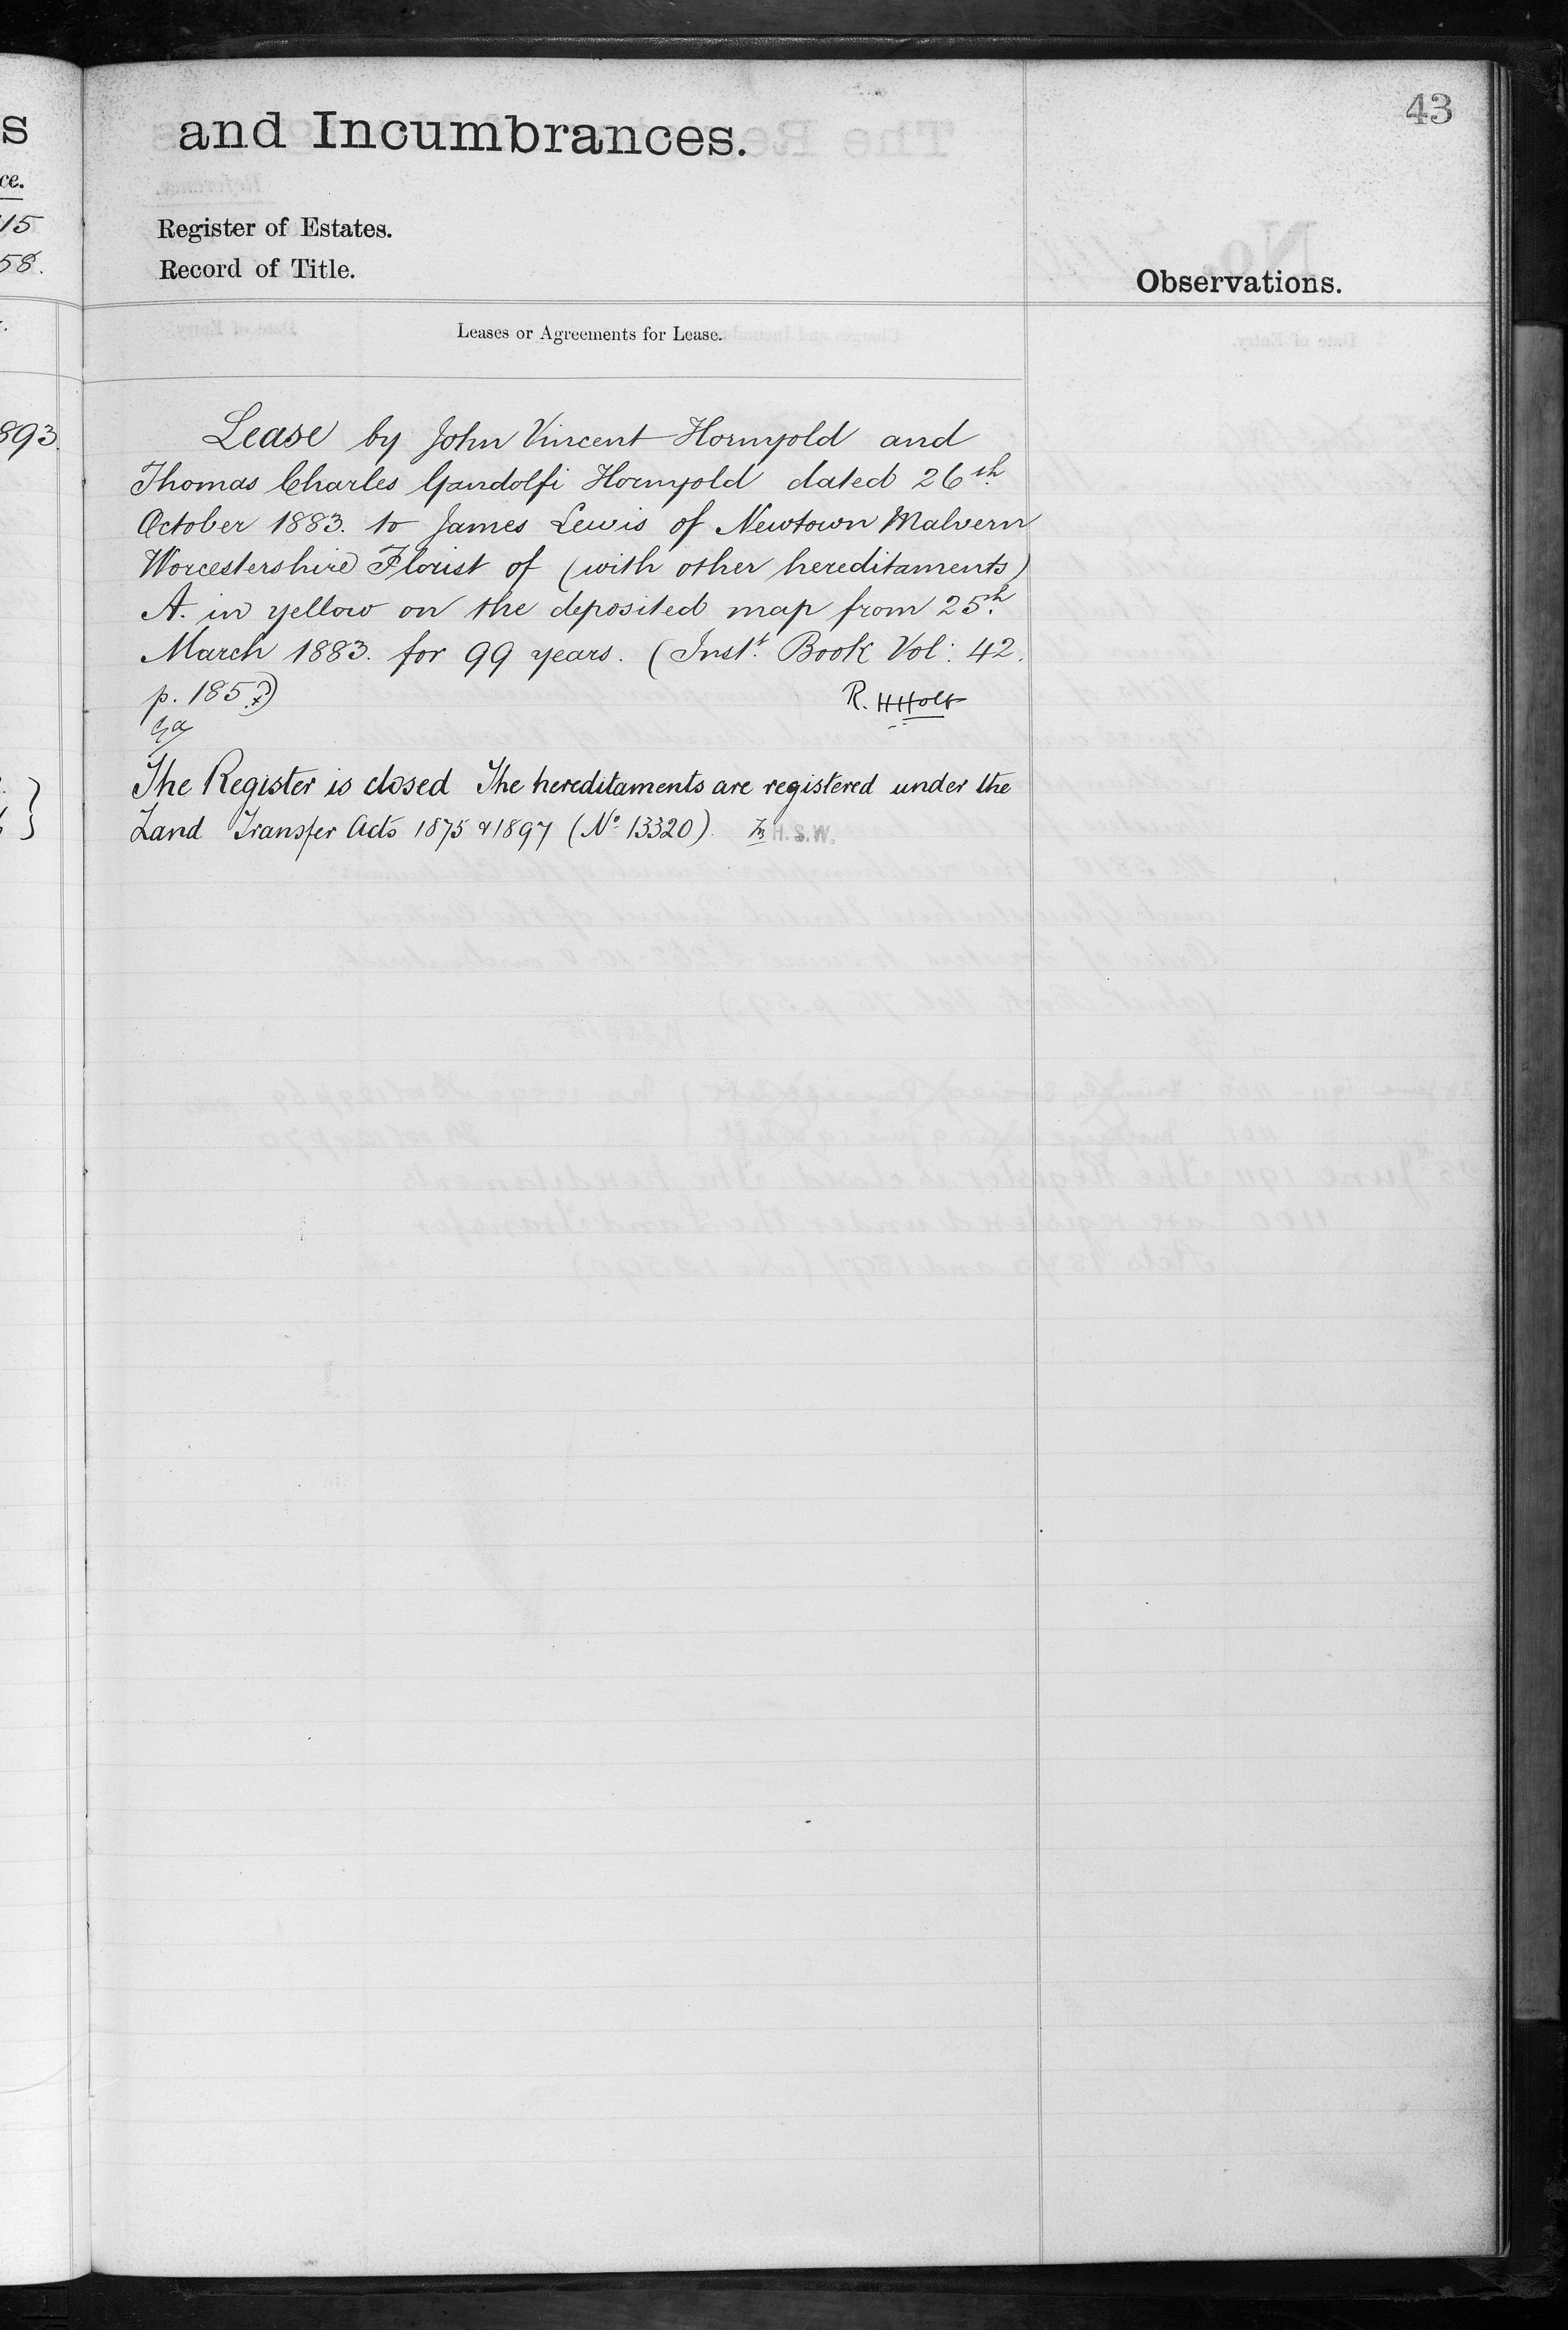 43
and Incumbrances.
Register of Estates.
Record of Title.
Observations.
Leases or Agreements for Lease.
Lease by John Vincent Hornyold and
Thomas Charles Gandolfi Hornyold dated 26th
October 1883. to James Lewis of Newtown Malvern
Worcestershire Florist of (with other hereditaments)
A. in yellow on the deposited map from 25th
March 1883. for 99 years. (Inst. Book Vol: 42.
p. 185
R. H Holt
The Register is closed The hereditaments are registered under the
Land Transfer Acts 1875 & 1897 (No 13320). H.S.W.
s
ce.
15
58.
893.